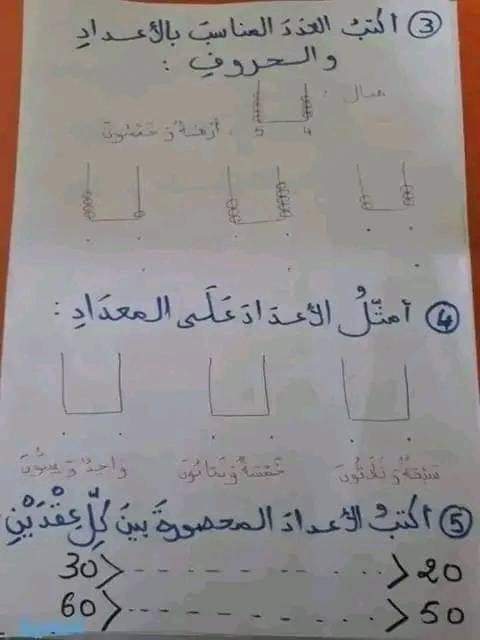 ③ أكتبُ العَدَدَ المناسبَ بالأعدادِ
والحروفِ :
مثال :
5 4
أربعةٌ وَ خَمْسُونَ
④ أمثّلُ الأعدادَ عَلَى المعدَادِ :
سَبْعَةٌ وَ ثَلَاثُونَ خَمْسَةٌ وَ ثَمَانُونَ وَاحِدٌ وَ سِتُّونَ
⑤ أكتبُ الأعدادَ المحصورةَ بينَ كلِّ عِقْدَيْنِ
20 < - - - - - - - - < 30
50 < - - - - - - - - < 60